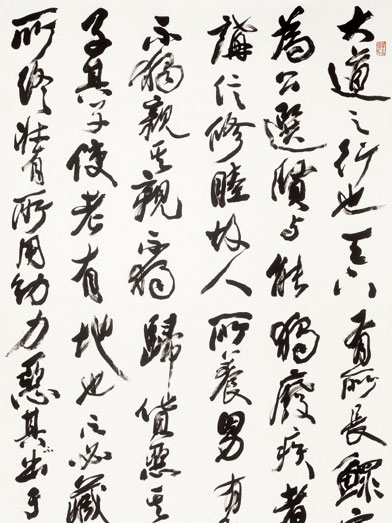 大道之行也天下
為公選賢与能
講信修睦故人
不獨親其親不獨
子其子使老有
所終壯有所用幼
有所長鰥
獨廢疾者
所養男有
歸貨惡其
地也不必藏
力惡其出于